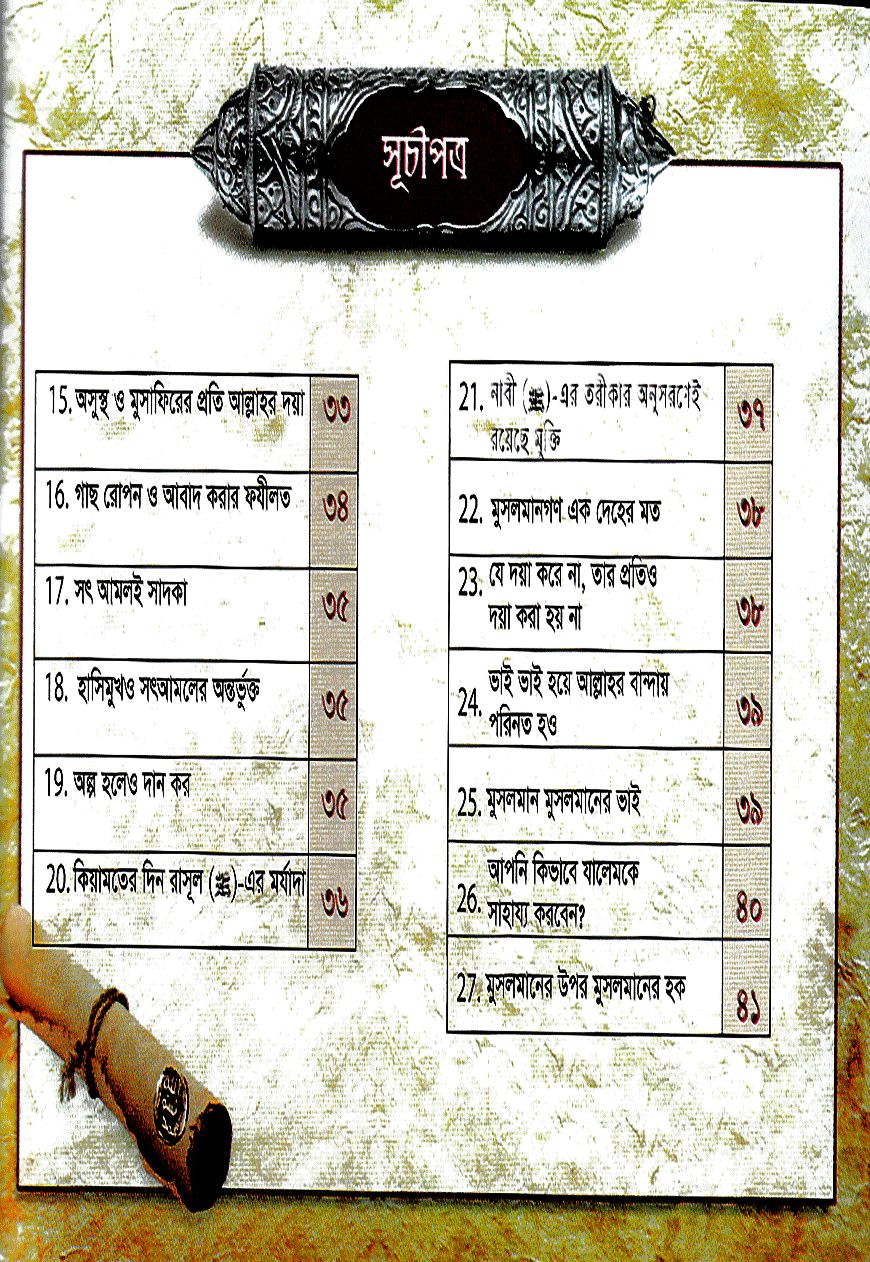 সূচীপত্র
15. অসুস্থ ও মুসাফিরের প্রতি আল্লাহর দয়া ৩৩
16. গাছ রোপন ও আবাদ করার ফযীলত ৩৪
17. সৎ আমলই সাদকা ৩৫
18. হাসিমুখও সৎআমলের অন্তর্ভুক্ত ৩৫
19. অল্প হলেও দান কর ৩৫
20. কিয়ামতের দিন রাসূল (ﷺ)-এর মর্যাদা ৩৬
21. নাবী (ﷺ)-এর তরীকার অনুসরণেই
রয়েছে মুক্তি ৩৭
22. মুসলমানগণ এক দেহের মত ৩৮
23. যে দয়া করে না, তার প্রতিও
দয়া করা হয় না ৩৮
24. ভাই ভাই হয়ে আল্লাহর বান্দায়
পরিনত হও ৩৯
25. মুসলমান মুসলমানের ভাই ৩৯
26. আপনি কিভাবে যালেমকে
সাহায্য করবেন? ৪০
27. মুসলমানের উপর মুসলমানের হক ৪১